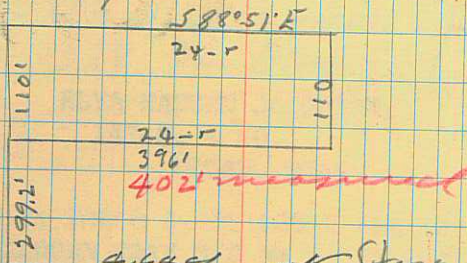 S 88°51'E
24-r
110'
110
24-r
396'
402' measured
299.2'